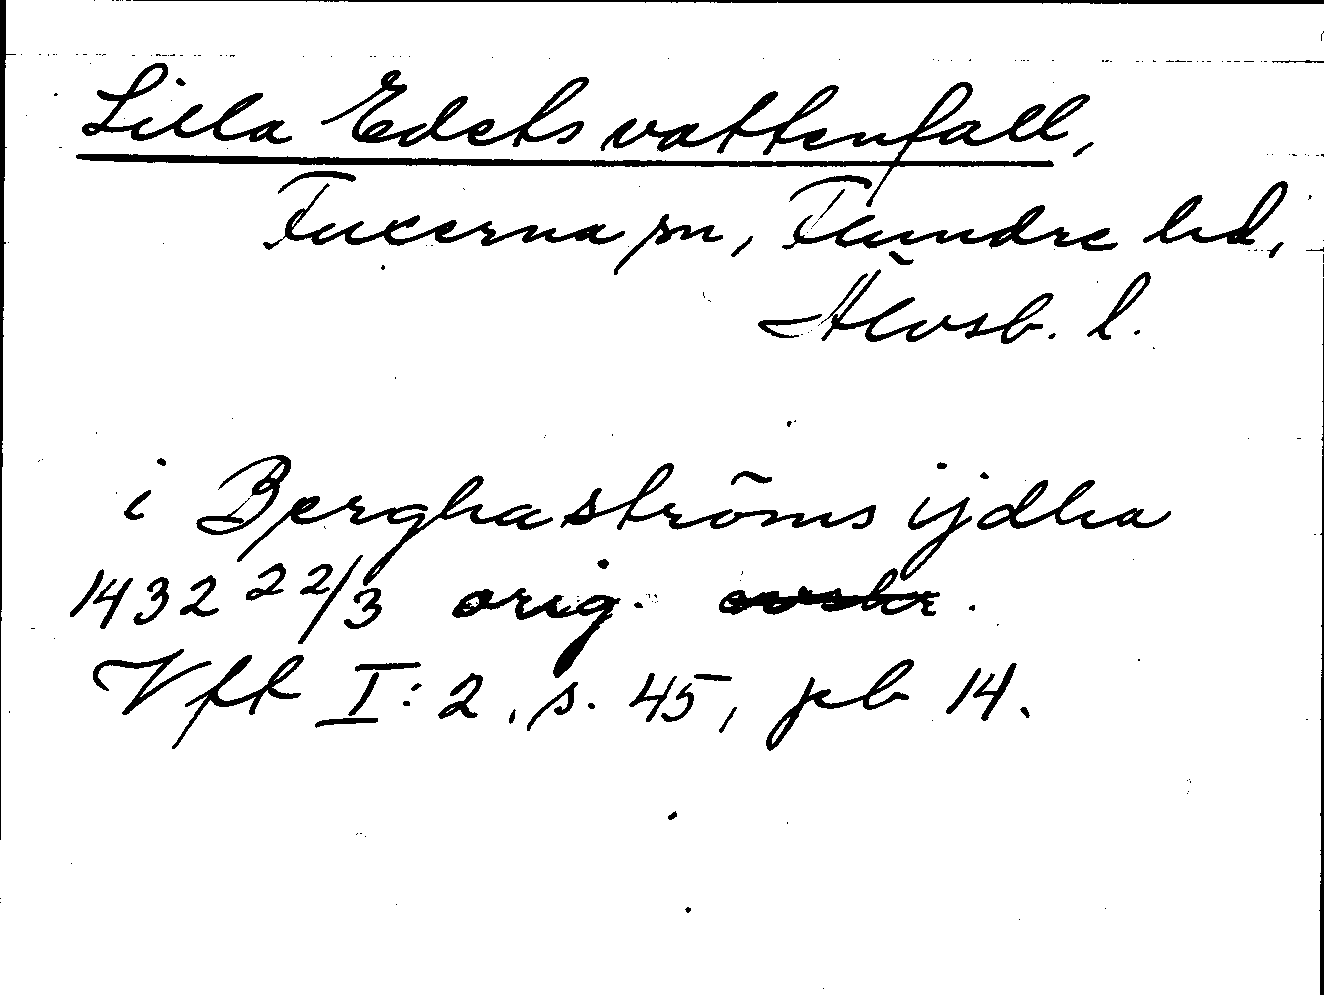 Lilla Edets vattenfall,
Fuxerna sn, Flundre hd,
Älvsb. l.
i Berghaströms ijdha
1432 22/3 orig.
Vff I:2, s. 45, pb 14.